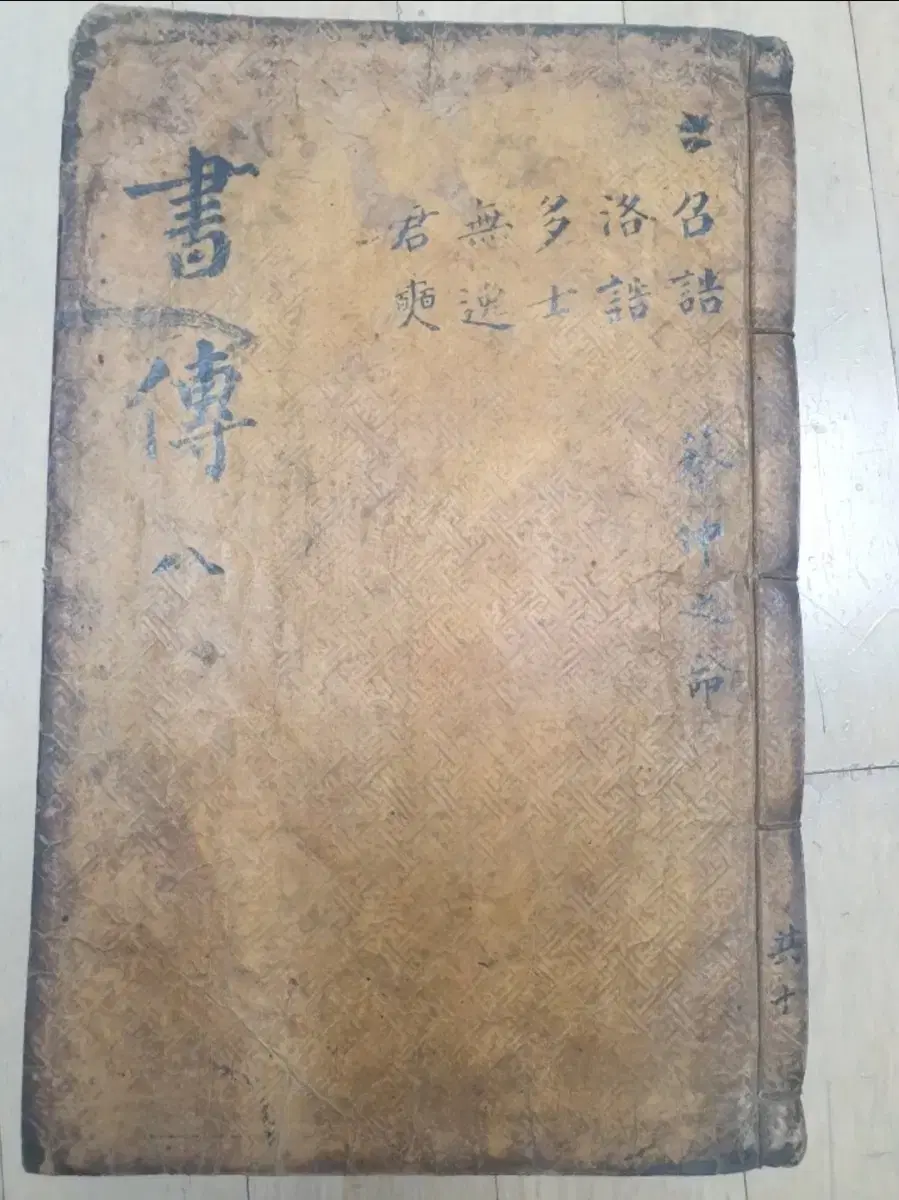 召誥
洛誥
多士
無逸
君奭
蔡仲之命
書傳 八
共十